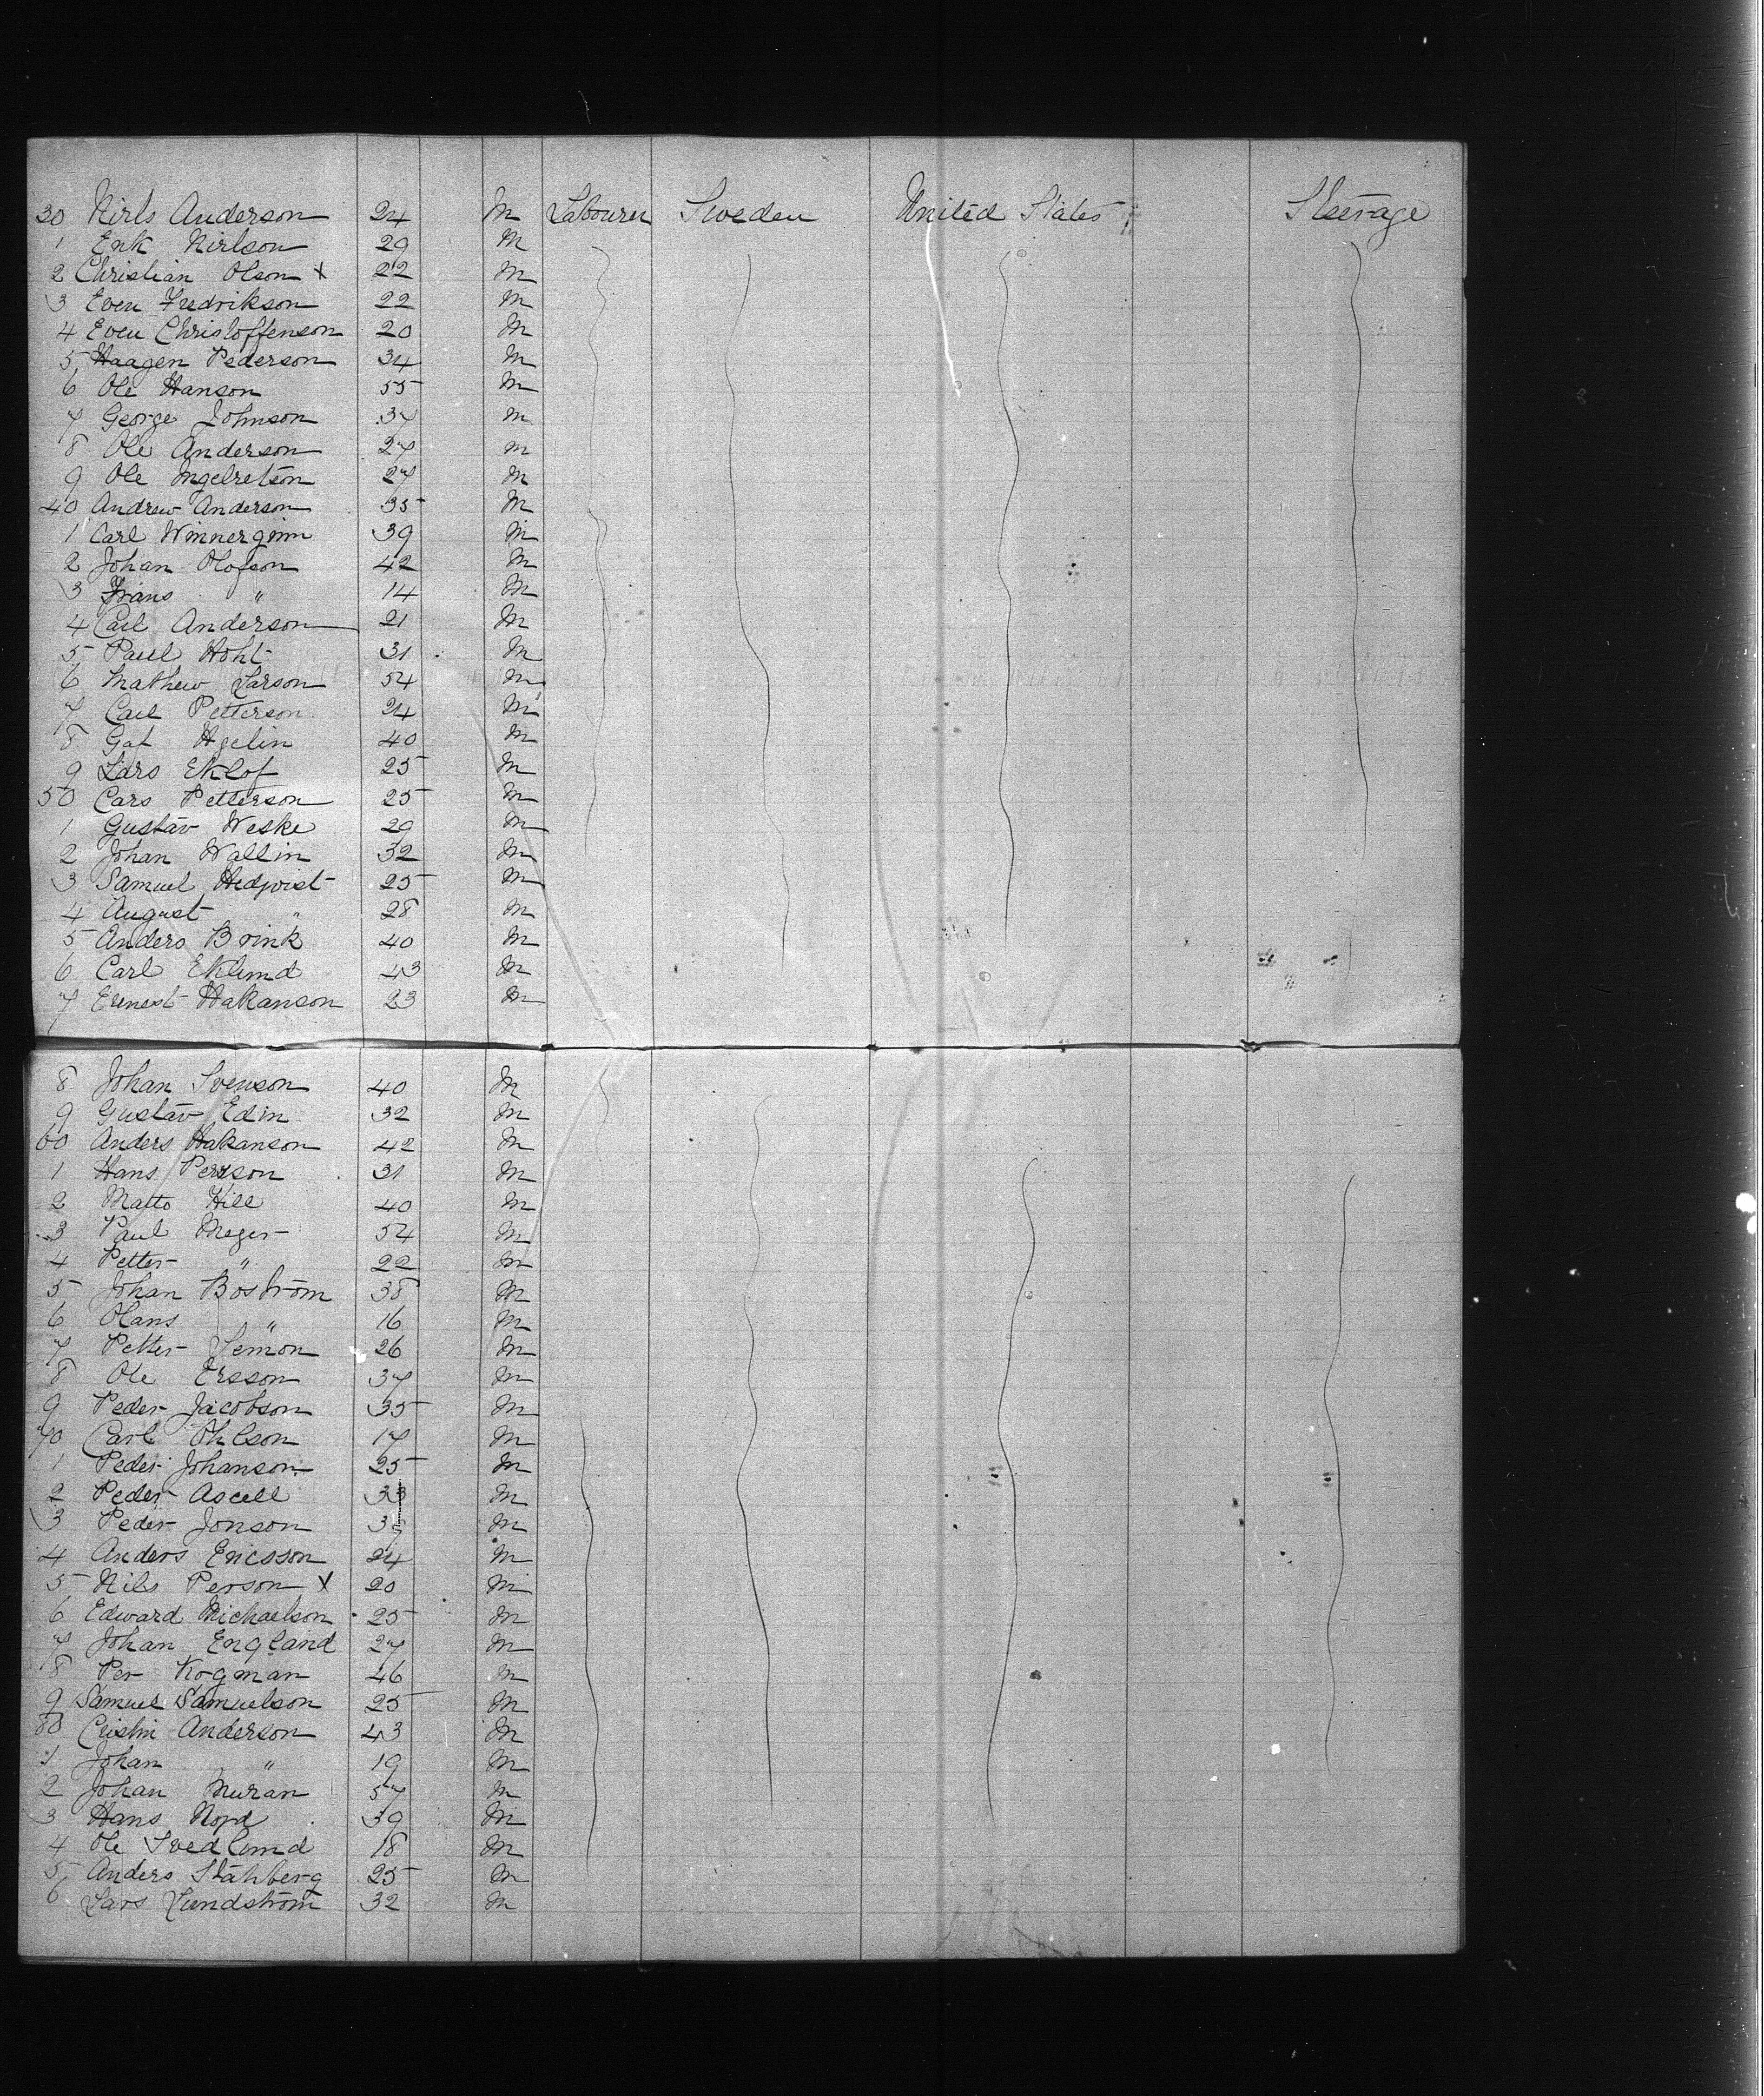 30 Nirls Anderson 24 M Labourer Sweden United States Steerage
1 Erik Nirlson 29 M
2 Christian Olson x 22 M
3 Even Fredrikson 22 M
4 Even Christoffenson 20 M
5 Haagen Pederson 34 M
6 Ole Hanson 55 M
7 George Johnson 37 M
8 Ole Anderson 27 M
9 Ole Ingelretson 27 M
40 Andrew Anderson 35 M
1 Carl 39 M
2 Johan Olofson 42 M
3 Frans " 14 M
4 Carl Anderson 21 M
5 Paul Hohl 31 M
6 Mathew Larson 54 M
7 Carl Petterson 24 M
8 40 M
9 Lars Eklof 25 M
50 Cars Petterson 25 M
1 Gustav Weske 29 M
2 Johan Wallin 32 M
3 Samuel Hedqvist 25 M
4 August " 28 M
5 Anders Brink 40 M
6 Carl Eklund 43 M
7 Ernest Hakanson 23 M
8 Johan Svenson 40 M
9 Gustav Edin 32 M
60 Anders Hakanson 42 M
1 Hans Persson 31 M
2 Matts Hill 40 M
3 Paul Meger 54 M
4 Petter " 22 M
5 Johan Boström 38 M
6 Olans " 16 M
7 Petter Semon 26 M
8 Ole Ersson 37 M
9 Peder Jacobson 35 M
70 Carl Ohlson 17 M
1 Peder Johanson 25 M
2 Peder Ascell 33 M
3 Peder Jonson M
4 Anders Ericsson 24 M
5 Nils Person x 20 M
6 Edward Michaelson 25 M
7 Johan England 27 M
8 Per Kogman 46 M
9 Samuel Samuelson 25 M
80 Cristin Anderson 43 M
1 Johan " 19 M
2 Johan Muran 57 M
3 Hans Nord 39 M
4 Ole Svedlund 18 M
5 Anders Stahberg 25 M
6 Lars Lundström 32 M